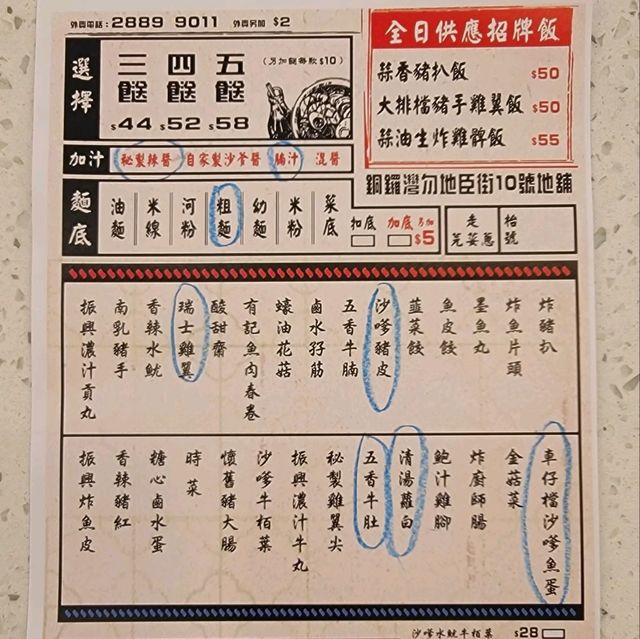 外賣電話：2889 9011 外賣另加 $2
選擇
三餸 四餸 五餸
(另加餸每款$10)
$44 $52 $58
加汁
秘製辣醬 自家製沙爹醬 腩汁 混醬
麵底
油麵 米線 河粉 粗麵 幼麵 米粉 菜底
扣底 加底 另加 $5
走芫荽葱
枱號
全日供應招牌飯
蒜香豬扒飯 $50
大排檔豬手雞翼飯 $50
蒜油生炸雞髀飯 $55
銅鑼灣勿地臣街10號地舖
炸豬扒
炸魚片頭
墨魚丸
魚皮餃
韮菜餃
沙嗲豬皮
五香牛腩
鹵水孖筋
蠔油花菇
有記魚肉春卷
酸甜齋
瑞士雞翼
香辣水魷
南乳豬手
振興濃汁貢丸
車仔檔沙嗲魚蛋
金菇菜
炸廚師腸
鮑汁雞腳
清湯蘿白
五香牛肚
秘製雞翼尖
振興濃汁牛丸
沙嗲牛栢葉
懷舊豬大腸
時菜
糖心鹵水蛋
香辣豬紅
振興炸魚皮
沙嗲水魷牛栢葉 $28